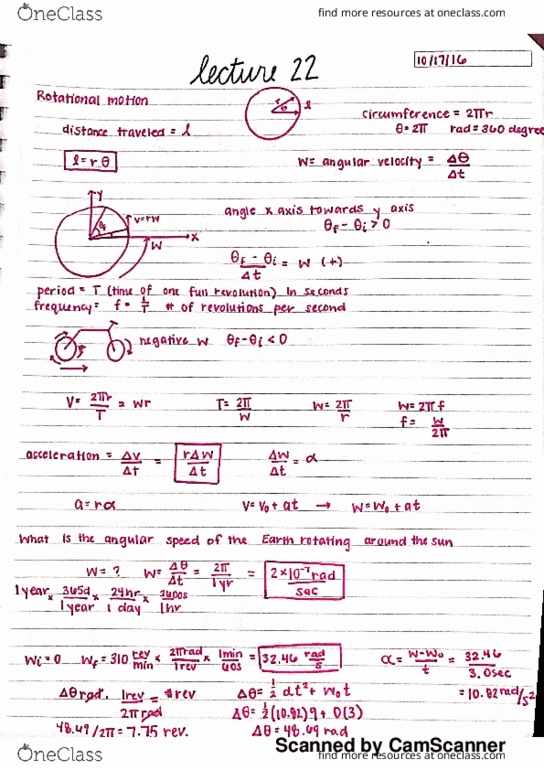 OneClass find more resources at oneclass.com
lecture 22
10/17/16
Rotational motion
r θ l
circumference = 2πr
distance traveled = l
θ = 2π rad = 360 degree
l = rθ
W = angular velocity = Δθ/Δt
Y
V=rW
X
W
angle x axis towards y axis
θf - θi > 0
θf - θi / Δt = W (+)
period = T (time of one full revolution) in seconds
frequency = f = 1/T # of revolutions per second
negative W θf - θi < 0
V = 2πr/T = Wr T = 2π/W W = 2π/r W = 2πf
f = W/2π
acceleration = ΔV/Δt = rΔW/Δt ΔW/Δt = α
a = rα V = V₀ + at → W = W₀ + αt
What is the angular speed of the Earth rotating around the sun
W = ? W = Δθ/Δt = 2π/1yr = 2×10⁻⁷ rad/sec
1 year × 365d/1 year × 24hr/1 day × 3600s/1hr
Wi = 0 Wf = 310 rev/min × 2π rad/1rev × 1min/60s = 32.46 rad/s α = W-W₀/t = 32.46/3.0sec
= 10.82 rad/s²
Δθ rad. 1rev/2π rad = # rev Δθ = ½ αt² + W₀t
Δθ = ½(10.82)9 + 0(3)
48.69/2π = 7.75 rev. Δθ = 48.69 rad
Scanned by CamScanner
OneClass find more resources at oneclass.com